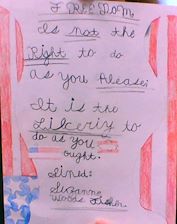 FREEDOM
Is not the
Right to do
as you Please;
It is the
Liberty to
do as you
ought.
Sined:
Suzanne
Woods Fisher